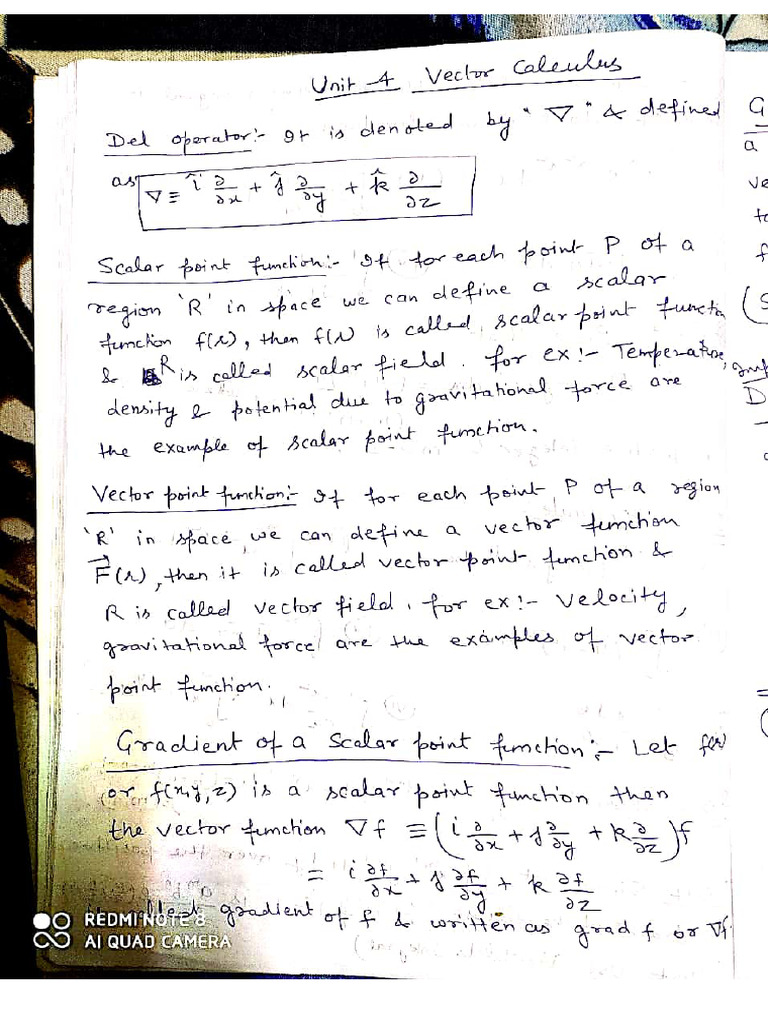 Unit-4 Vector Calculus
Del operator:- It is denoted by "∇" & defined
as ∇ ≡ î ∂/∂x + ĵ ∂/∂y + k̂ ∂/∂z
Scalar point function:- If for each point P of a
region 'R' in space we can define a scalar
function f(r), then f(r) is called scalar point functn
& R is called scalar field. for ex:- Temperature,
density & potential due to gravitational force are
the example of scalar point function.
Vector point function:- If for each point P of a region
'R' in space we can define a vector function
F⃗(r), then it is called vector point function &
R is called vector field. for ex:- velocity,
gravitational force are the examples of vector
point function.
Gradient of a scalar point function:- Let f(r)
or f(x,y,z) is a scalar point function then
the vector function ∇f ≡ (i ∂/∂x + j ∂/∂y + k ∂/∂z)f
= i ∂f/∂x + j ∂f/∂y + k ∂f/∂z
gradient of f & written as grad f or ∇f
REDMI NOTE 8
AI QUAD CAMERA